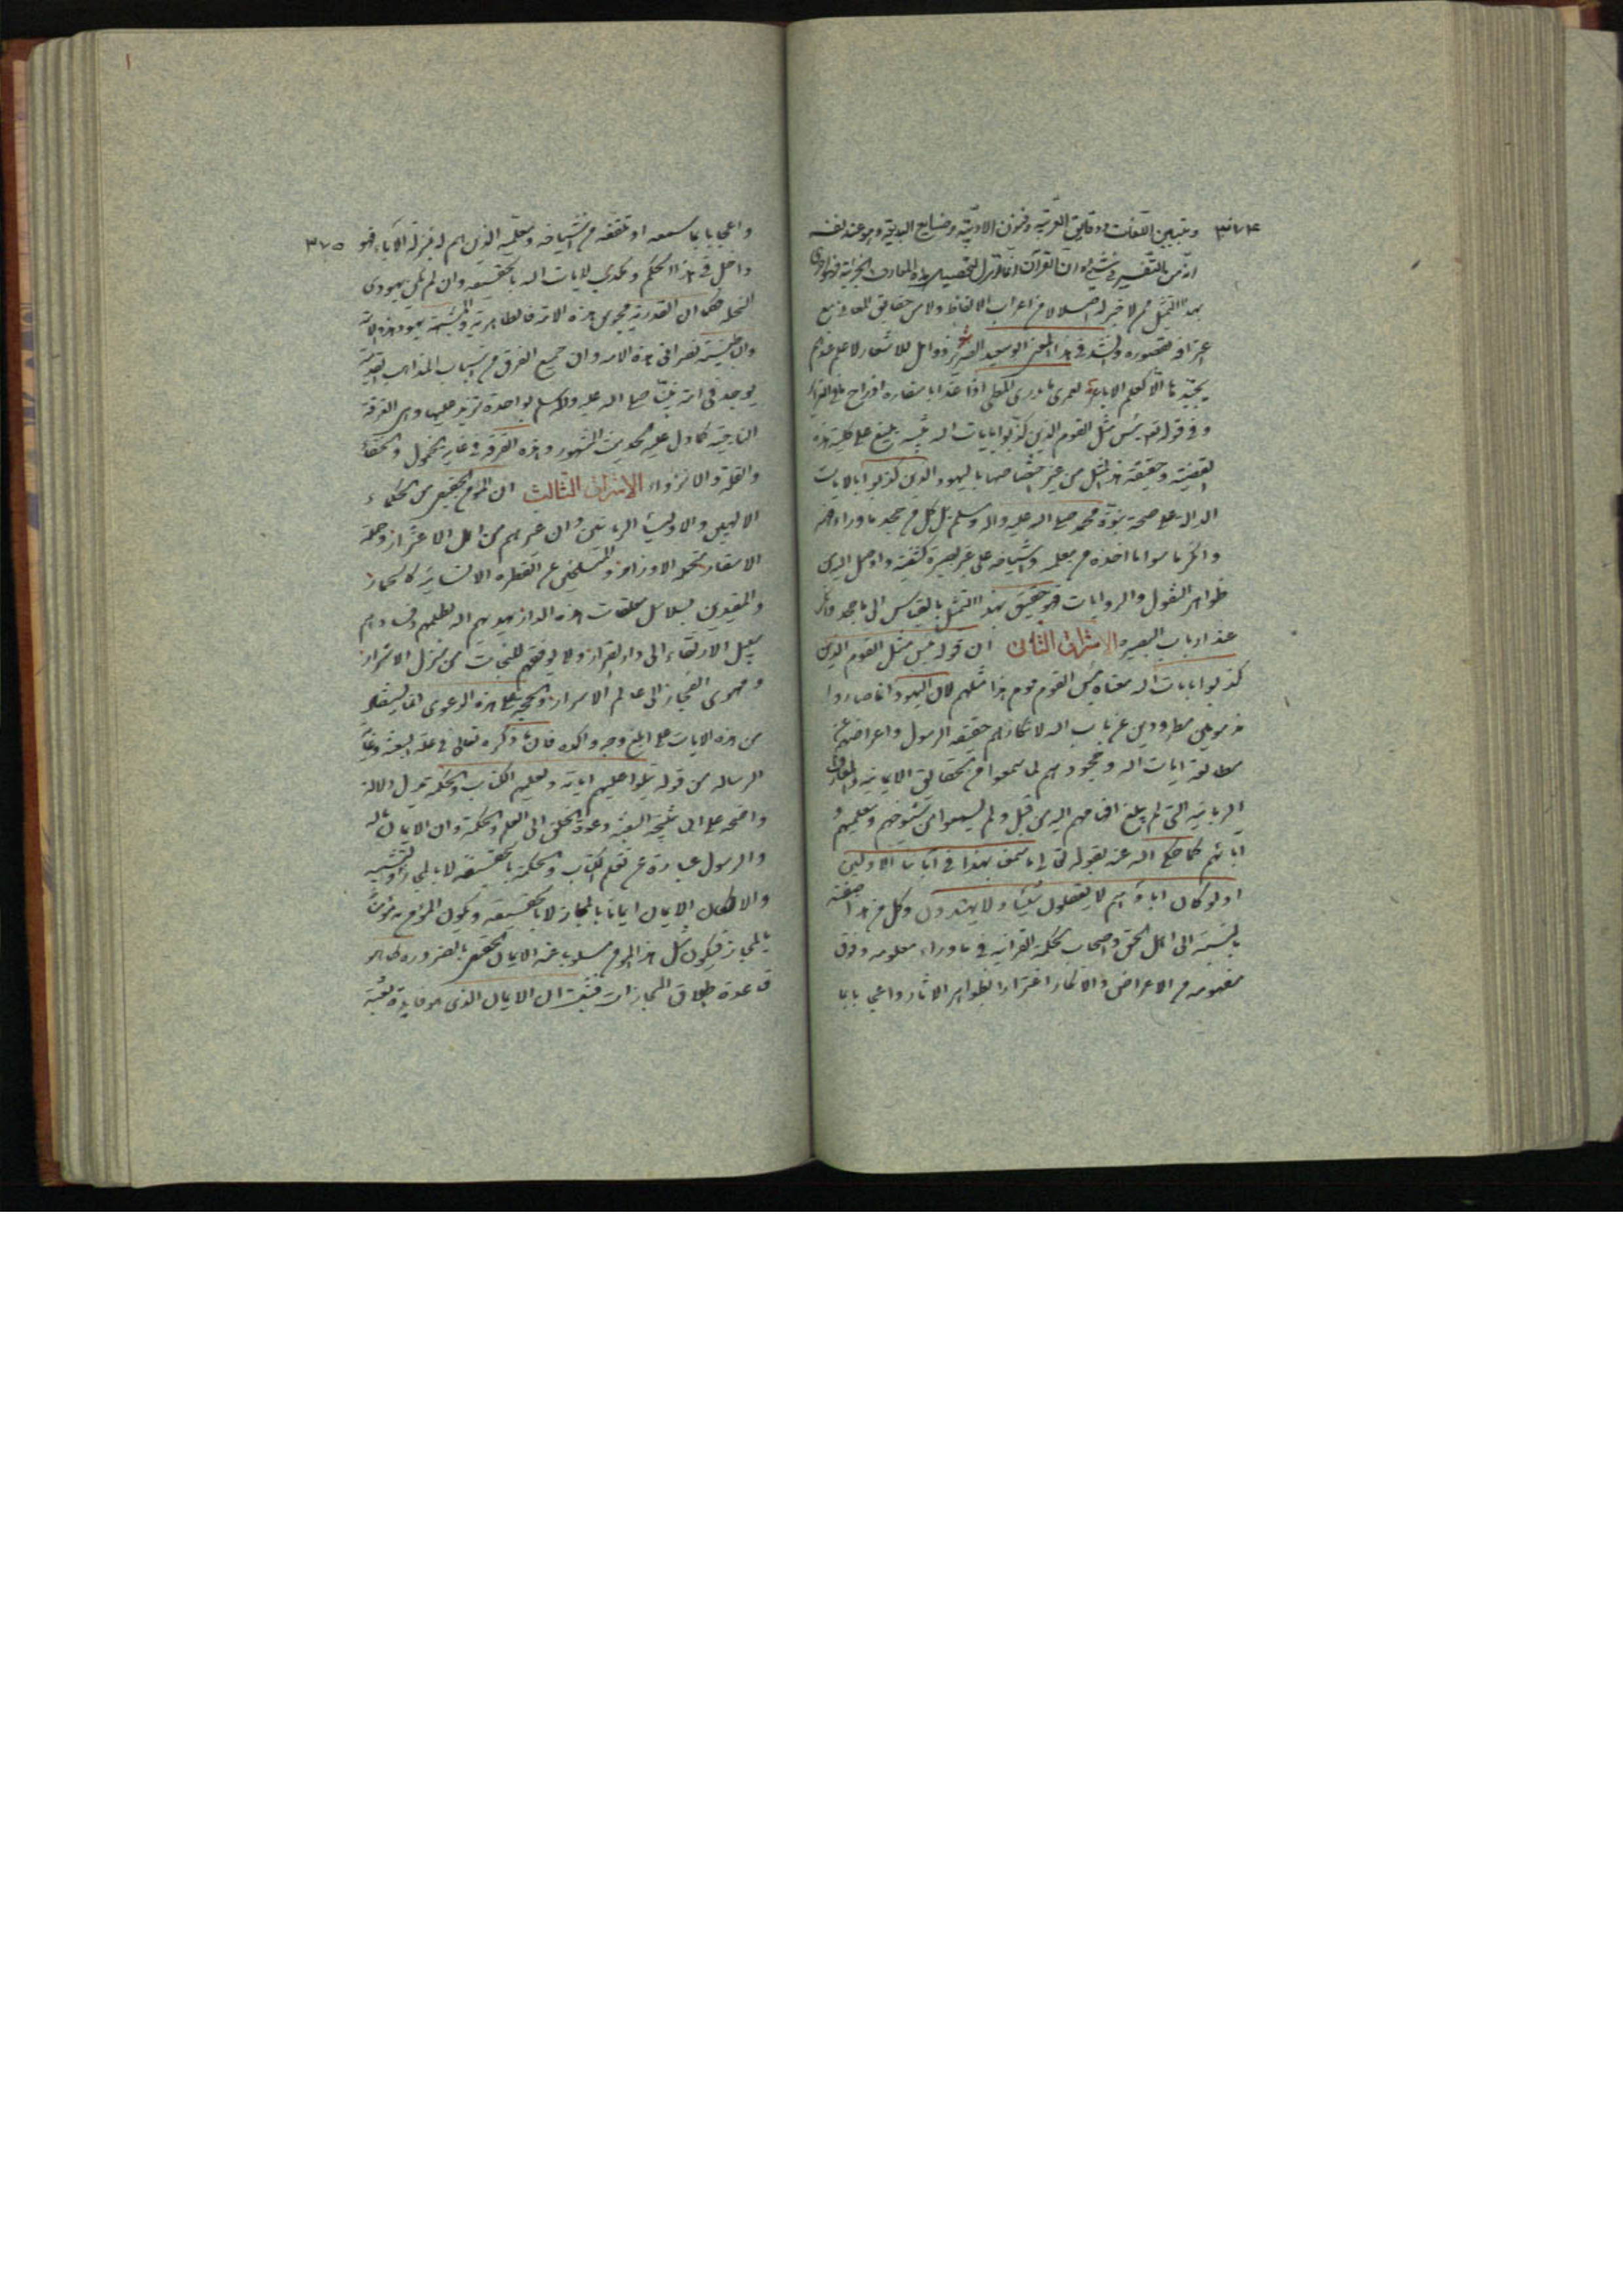 ٣٧٤ وتبيين اللغات ودقايق العربية وفنون الادبية وصنايع البديعية وهو عند نفسه
انه من التفسير في شئ او ان القرآن انما انزل لتحصيل هذه المعارف الجزئية فهو احرى
بهذا التمثيل ممن لا خبر له اصلا لا من اعراب الالفاظ ولا من حقايق المعانى مع
اعترافه بقصوره وانشد فى هذا المعنى ابو سعيد الضرير شعر زوامل للاشعار لا علم عندهم
بجيدها الا كعلم الاباعر لعمرى ما يدرى المطى اذا غدا باسفاره او راح ما فى الغراير
وفى قوله تعالى بئس مثل القوم الذين كذبوا بايات الله تنبيه بليغ على كلية هذه
القضية وحقيقة هذا المثل من غير اختصاصها باليهود الذين كذبوا بالايات
الدالة على صحة نبوة محمد صلى الله عليه واله وسلم بل كل من يجحد ما وراء فهمه
وانكر ما سوى ما اخذه من معلمه واشياخه على غير بصيرة كشفية واوصل الى
ظواهر النقول والروايات فهو حقيق بهذا التمثل بالقياس الى ما جحد وانكر
عند ارباب البصيرة الاشراق الثانى ان قوله بئس مثل القوم الذين
كذبوا بايات الله معناه بئس القوم قوم هذا مثلهم لان اليهود انما صاروا
مذمومين مطرودين عن باب الله لانكارهم حقيقة الرسول واعراضهم عن
مطالعة ايات الله وجحودهم لما سمعوا من الحقايق الايمانية والمعارف
الربانية التى لم يبلغ افهامهم اليه من قبل ولم يسمعوا من شيوخهم ومعلميهم و
ابائهم كما حكى الله عنه بقوله تعالى ما سمعنا بهذا فى آبائنا الاولين
اولو كان اباؤهم لا يعقلون شيئا ولا يهتدون وكل من هذا صفته
بالنسبة الى اهل الحق واصحاب الحكمة القرانية فى ما وراء معلومه وفوق
مفهومه من الاعراض والانكار اغترارا بظواهر الاثار واعجابا بما
واعجابا بما سمعه او تلقفه من اشياخه ومعلميه الذين هم له بمنزلة الآباء فهو ٣٧٥
داخل فى هذا الحكم ومكذب لايات الله بالحقيقة وان لم يكن يهودى
النحلة كما ان القدرية مجوس هذه الامة فالظاهرية والمشبهة يهود هذه الامة
والباطنية نصرانى هذه الامة وان جميع الفرق من اسباب المذاهب القديمة
يوجد فى امة نبينا صلى الله عليه واله وسلم بواحدة تزيد عليها وهى الفرقة
الناجية كما دل عليه الحديث المشهور وهذه الفرقة فى غاية الخمول والخفاء
والقلة والانزواء الاشراق الثالث ان المؤمن الحقيقى من الحكماء
الالهيين والاولياء الربانيين وان غيرهم من اهل الاغترار وحملة
الاسفار بتحمل الاوزار والمنسلخين عن الفطرة الانسانية كالحمار
والمقيدين بسلاسل متعلقات هذه الدار لا يهديهم الله لظلمهم وفسادهم
سبيل الارتقاء الى دار القرار ولا يوفقهم للنجاة من منزل الاشرار
ومهوى الفجار الى عالم الاسرار والحجة على هذه الدعوى لقائليها
من هذه الايات على ابلغ وجه واكده فان ما ذكره تعالى فى علة البعثة وغاية
الرسالة من قوله يتلوا عليهم اياته ويعلمهم الكتاب والحكمة تدل دلالة
واضحة على ان نتيجة البعثة دعوة الخلق الى العلم والحكمة وان الايمان بالله
والرسول عبارة عن تعلم الكتاب والحكمة بالحقيقة لا بالمجاز والتشبيه
والا لكان الايمان ايمانا بالمجاز لا بالحقيقة ويكون المؤمن به مؤمنا
بالمجاز فيكون مثل هذا المؤمن مسلوبا عنه الايمان الحقيقى بالضرورة كما هو
قاعدة اطلاق المجازات فثبت ان الايمان الذى هو فايدة بعثة